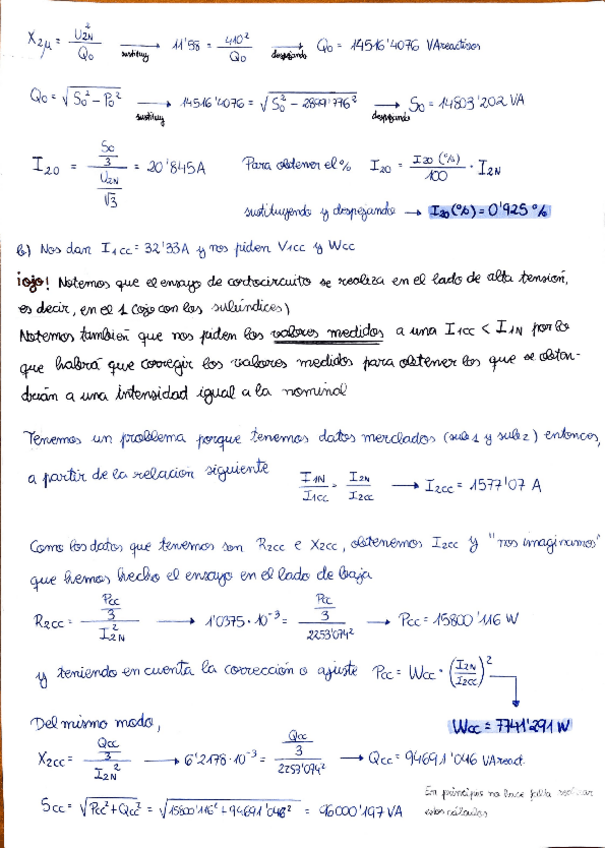 X2μ = U2N² / Q0 → sustituy 11'58 = 410² / Q0 → despejando Q0 = 14516'4076 VAreactivos
Q0 = √(S0² - P0²) → sustituy 14516'4076 = √(S0² - 2899'776²) → despejando S0 = 14803'202 VA
I20 = (S0/3) / (U2N/√3) = 20'845A Para obtener el % I20 = I20(%)/100 · I2N
sustituyendo y despejando → I20(%) = 0'925 %
b) Nos dan I1cc = 32'33A y nos piden V1cc y Wcc
¡ojo! Notemos que el ensayo de cortocircuito se realiza en el lado de alta tensión,
es decir, en el 1 (ojo con los subíndices)
Notemos también que nos piden los valores medidos a una I1cc < I1N por lo
que habrá que corregir los valores medidos para obtener los que se obten-
drían a una intensidad igual a la nominal
Tenemos un problema porque tenemos datos mezclados (sub 1 y sub 2) entonces,
a partir de la relación siguiente I1N/I1cc = I2N/I2cc → I2cc = 1577'07 A
Como los datos que tenemos son R2cc e X2cc, obtenemos I2cc y "nos imaginamos"
que hemos hecho el ensayo en el lado de baja
R2cc = (Pcc/3) / I2N² → 1'0375·10⁻³ = (Pcc/3) / 2253'094² → Pcc = 15800'116 W
y teniendo en cuenta la corrección o ajuste Pcc = Wcc · (I2N/I2cc)²
Del mismo modo, Wcc = 7741'291 W
X2cc = (Qcc/3) / I2N² → 6'2178·10⁻³ = (Qcc/3) / 2253'094² → Qcc = 94691'046 VAreact.
Scc = √(Pcc² + Qcc²) = √(15800'116² + 94691'046²) = 96000'197 VA
En principio no hace falta realizar
estos cálculos